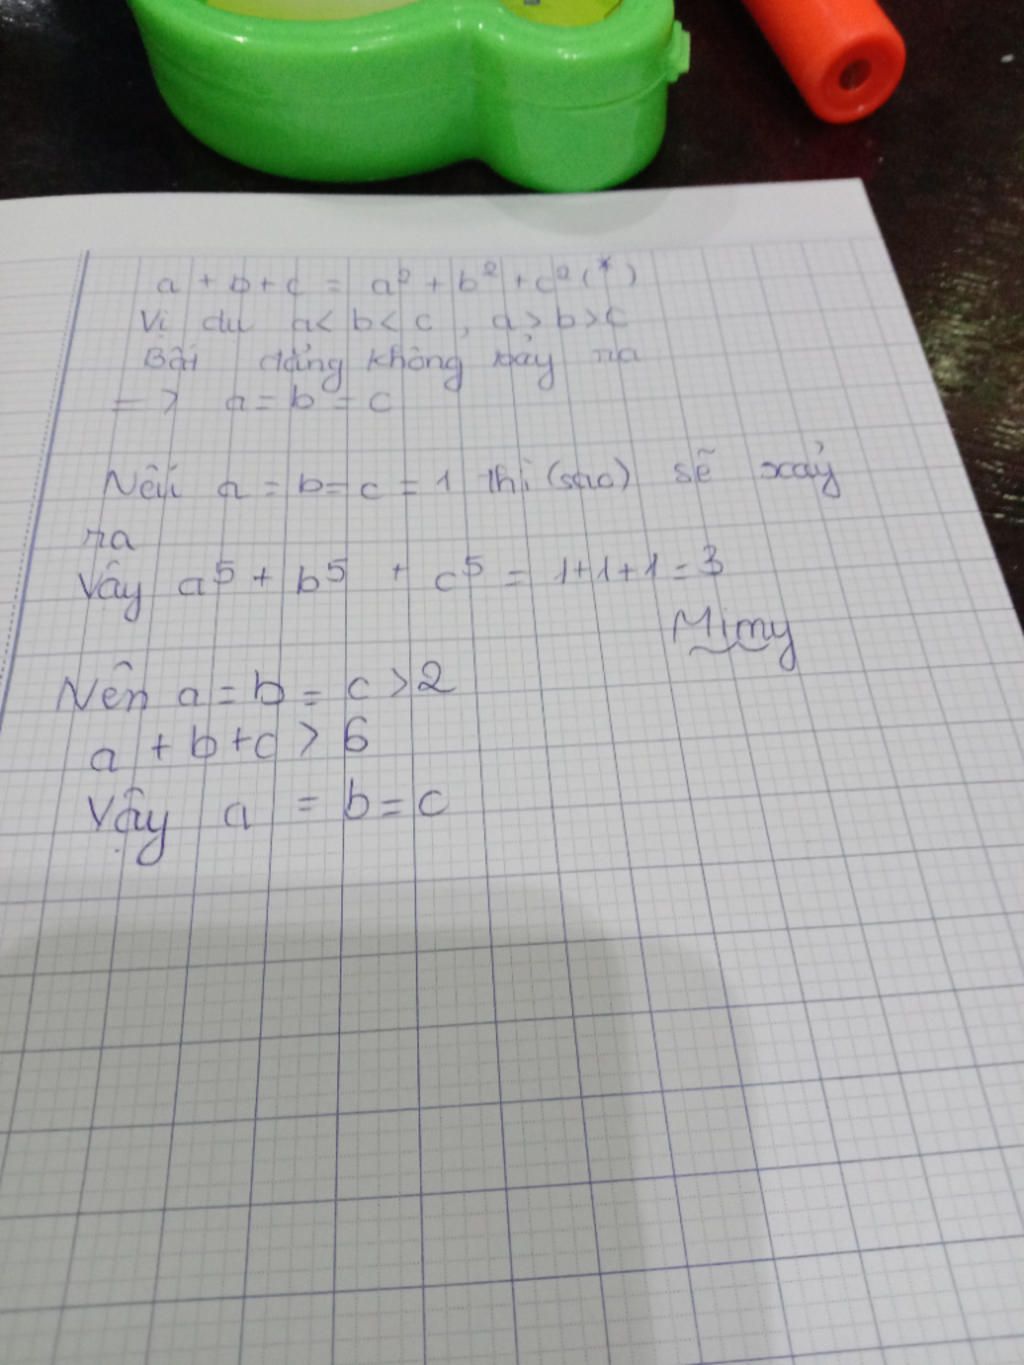 a + b + c = a² + b² + c² (*)
Ví dụ a < b < c , a > b > c
Bất đẳng không xảy ra
=> a = b = c
Nếu a = b = c = 1 thì (sao) sẽ xảy
ra
Vậy a⁵ + b⁵ + c⁵ = 1+1+1 = 3
Mimy
Nên a = b = c > 2
a + b + c > 6
Vậy a = b = c